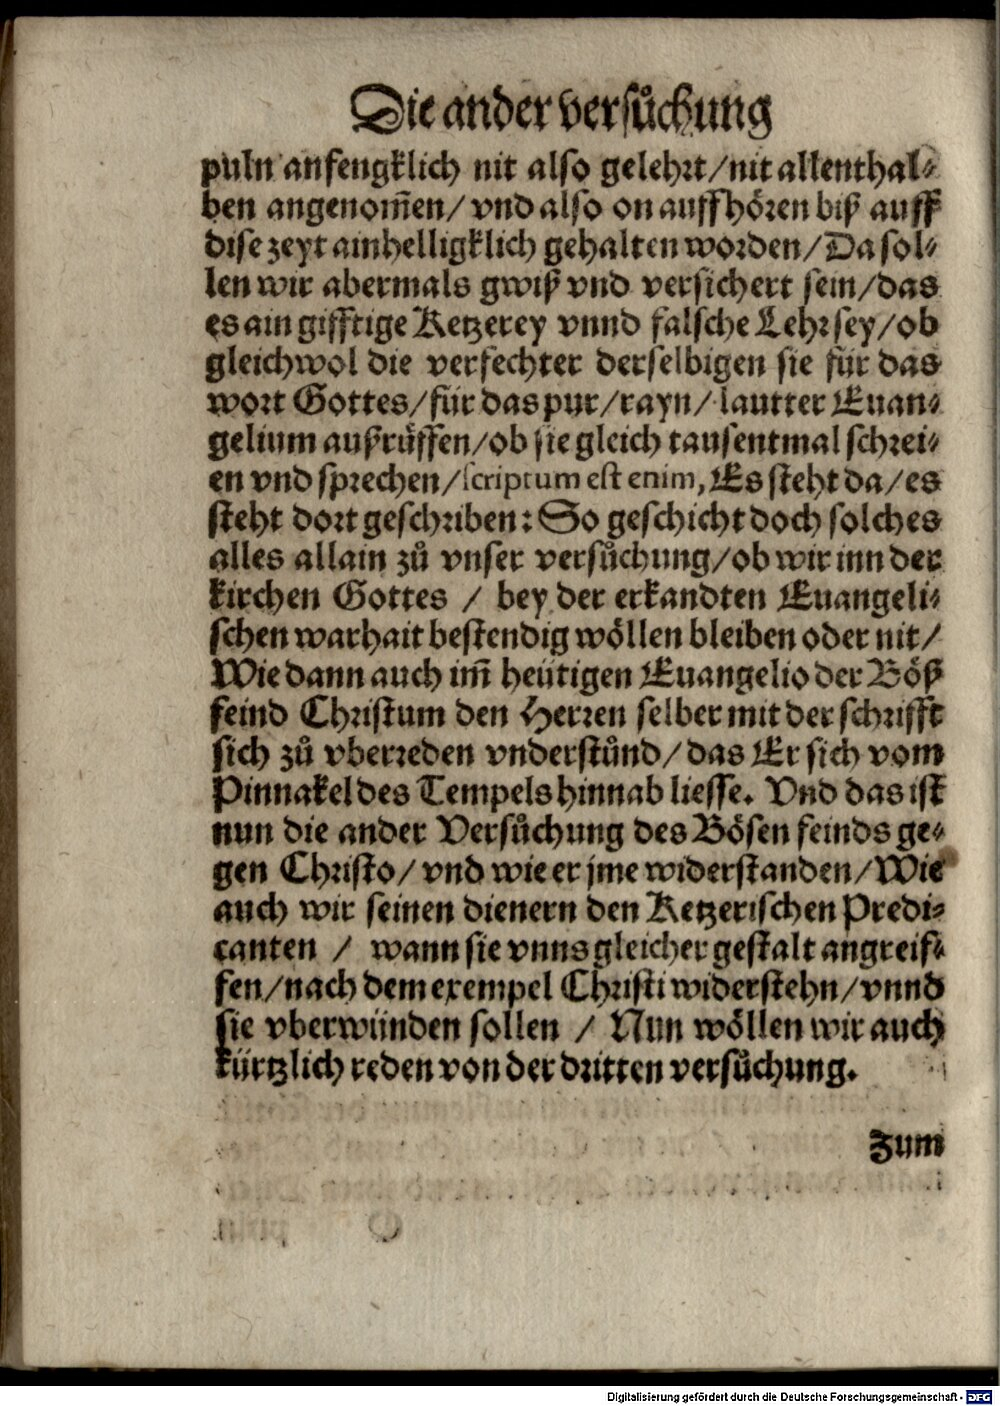 Die ander versůchung
puln anfengklich nit also gelehrt/nit allenthal-
ben angenom̃en/ vnd also on auffhören biß auff
dise zeyt ainhelligklich gehalten worden/Da sol-
len wir abermals gwiß vnd versichert sein/das
es ain gifftige Ketzerey vnnd falsche Lehr sey/ob
gleichwol die verfechter derselbigen sie für das
wort Gottes/für das pur/rayn/ lautter Euan-
gelium außrůffen/ob sie gleich tausentmal schrei-
en vnd sprechen/scriptum est enim, Es steht da/es
steht dort geschriben: So geschicht doch solches
alles allain zů vnser versůchung/ob wir inn der
kirchen Gottes / bey der erkandten Euangeli-
schen warhait bestendig wöllen bleiben oder nit/
Wie dann auch im̃ heütigen Euangelio der Böß
feind Christum den Herren selber mit der schrifft
sich zů vberreden vnderstůnd/das Er sich vom
Pinnakel des Tempels hinnab liesse. Vnd das ist
nun die ander Versůchung des Bösen feinds ge-
gen Christo/ vnd wie er jme widerstanden/Wie
auch wir seinen dienern den Ketzerischen Predi-
canten / wann sie vnns gleicher gestalt angreif-
fen/nach dem exempel Christi widerstehn/vnnd
sie vberwünden sollen / Nun wöllen wir auch
kürtzlich reden von der dritten versůchung.
Zum
Digitalisierung gefördert durch die Deutsche Forschungsgemeinschaft - DFG